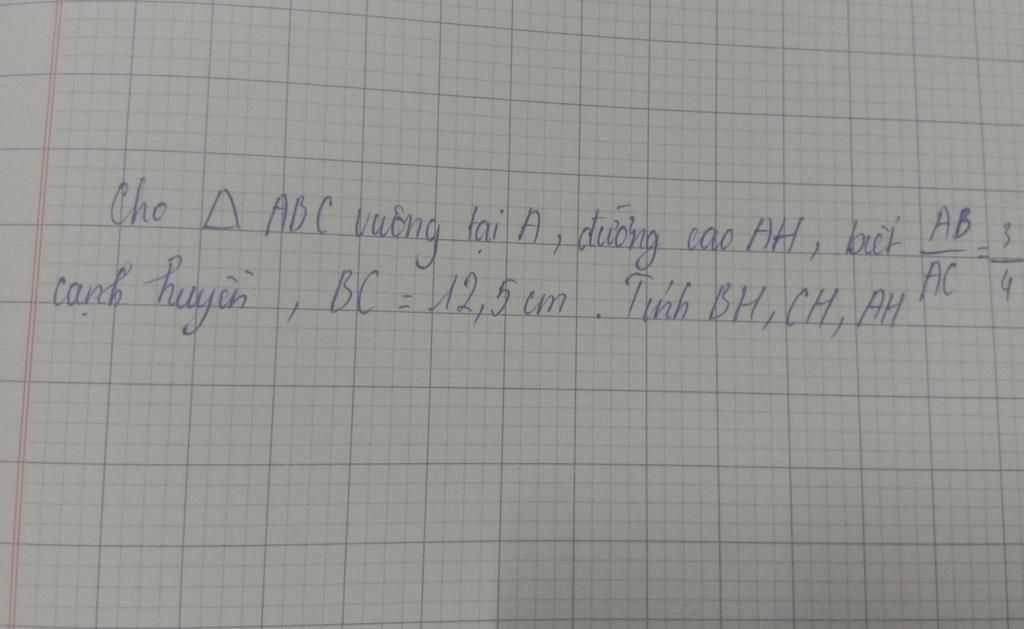 Cho Δ ABC vuông tại A, đường cao AH, biết AB/AC = 3/4
cạnh huyền, BC = 12,5 cm. Tính BH, CH, AH